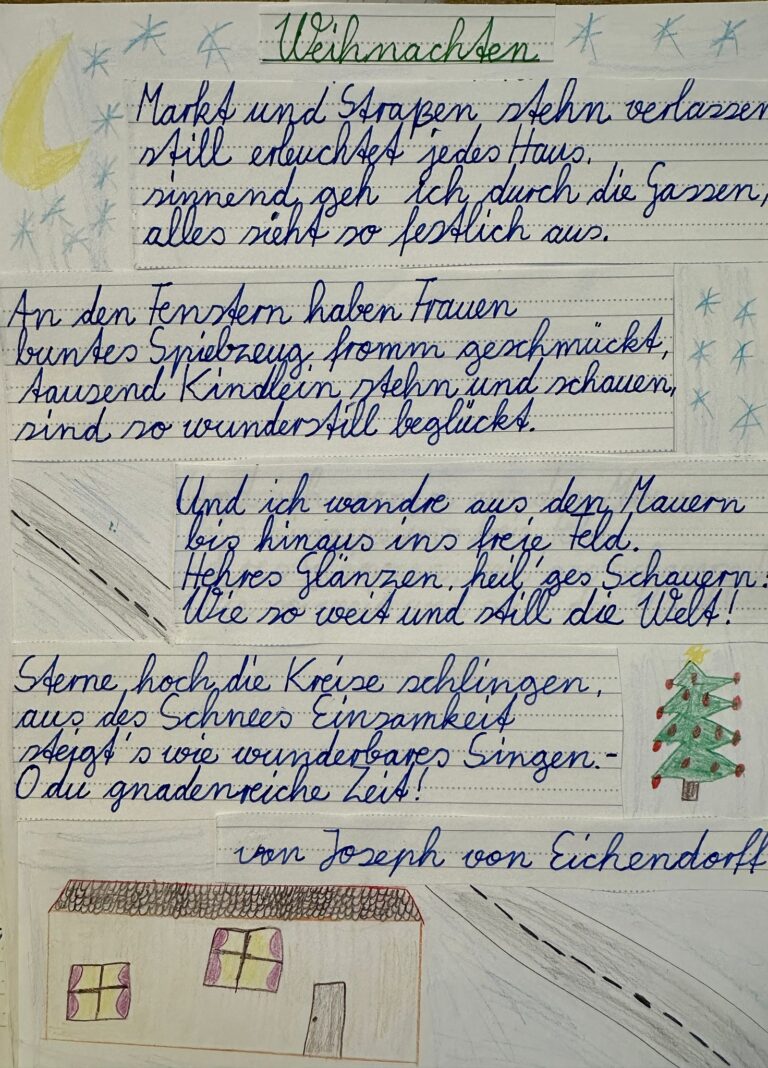 Weihnachten
Markt und Straßen stehn verlassen
still erleuchtet jedes Haus,
sinnend geh ich durch die Gassen,
alles sieht so festlich aus.
An den Fenstern haben Frauen
buntes Spielzeug fromm geschmückt,
tausend Kindlein stehn und schauen,
sind so wunderstill beglückt.
Und ich wandre aus den Mauern
bis hinaus ins freie Feld.
Hehres Glänzen, heil'ges Schauern:
Wie so weit und still die Welt!
Sterne hoch die Kreise schlingen,
aus des Schnees Einsamkeit
steigt's wie wunderbares Singen.-
O du gnadenreiche Zeit!
von Joseph von Eichendorff